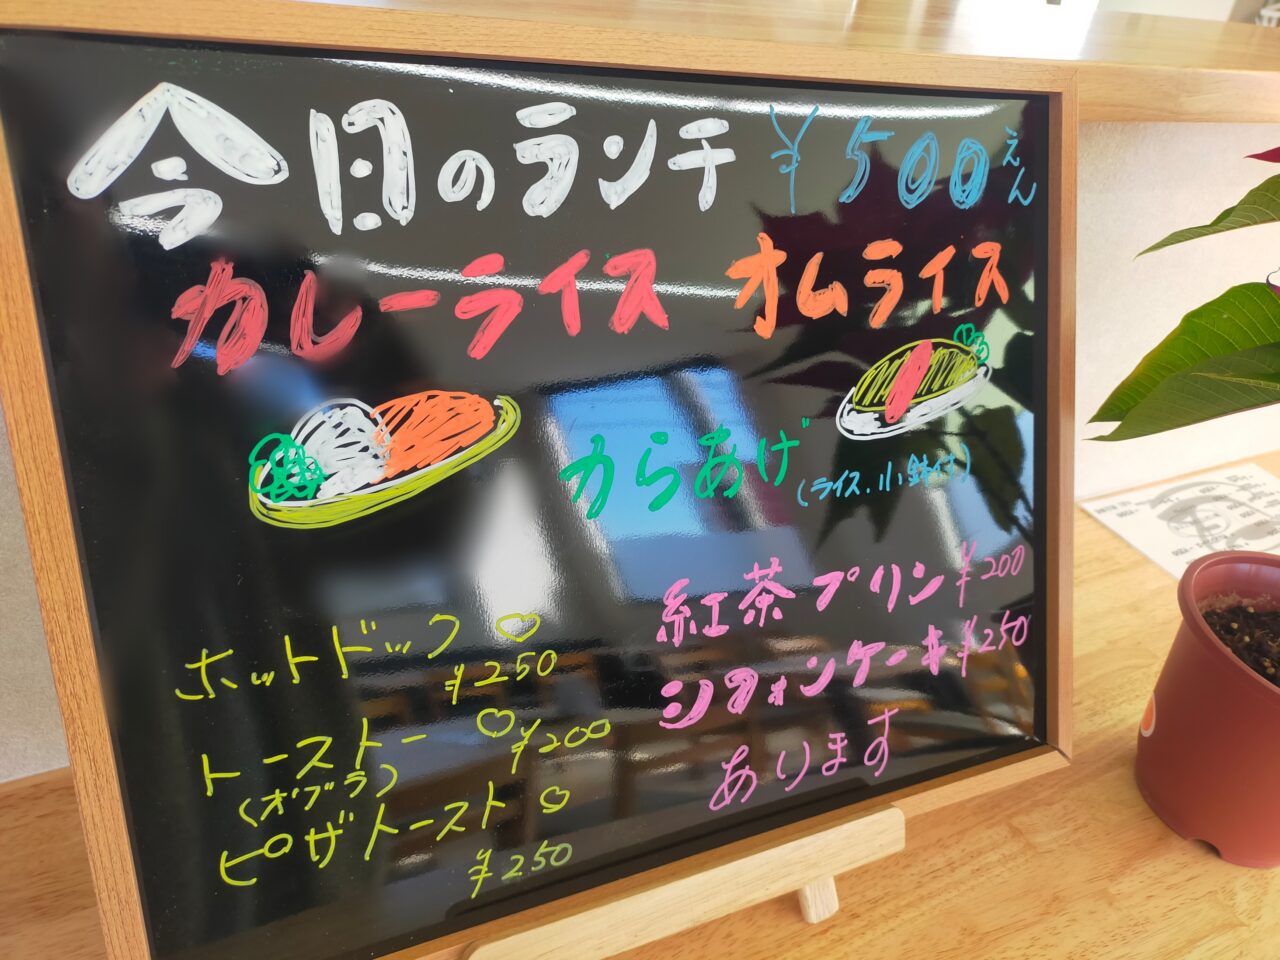 今日のランチ ¥500えん
カレーライス オムライス
からあげ(ライス.小鉢付)
紅茶プリン¥200
シフォンケーキ¥250
あります
ホットドック♡
¥250
トースト ♡
¥200
ピザトースト♡
¥250